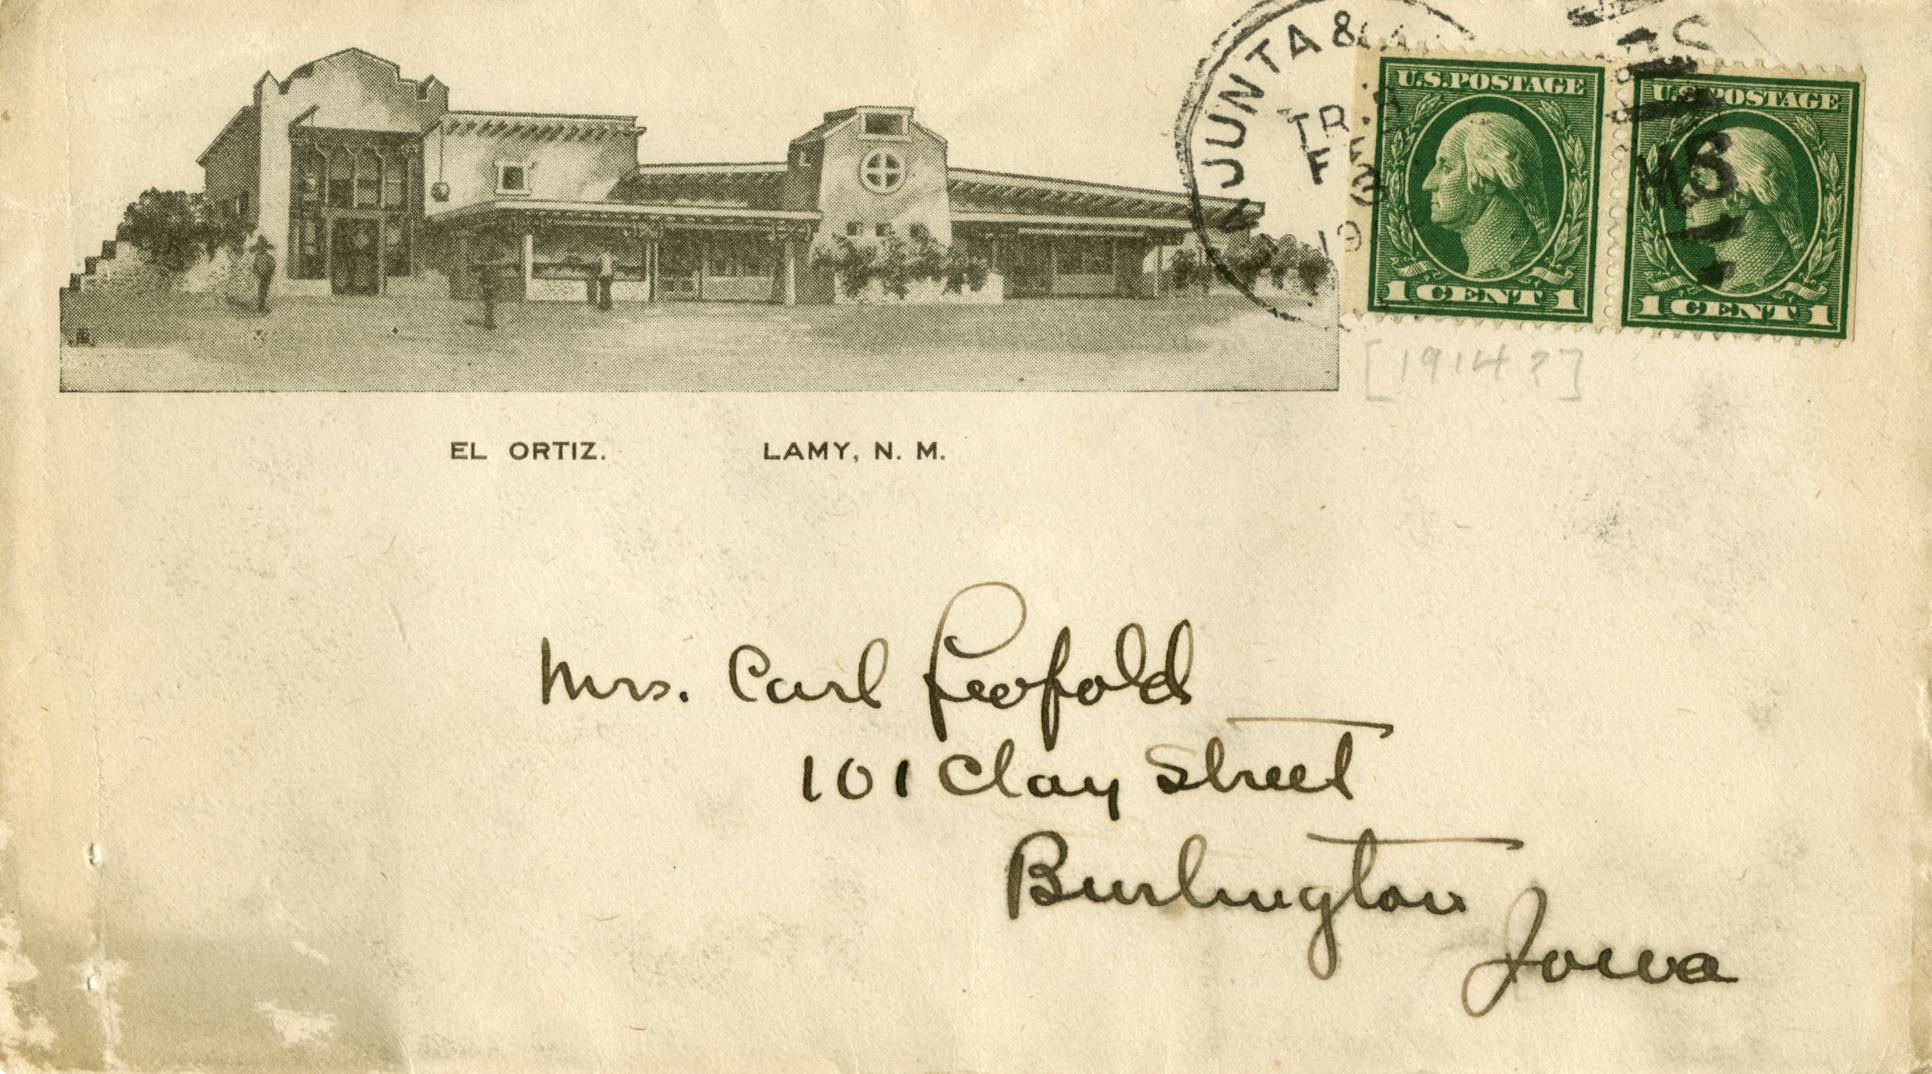 LA JUNTA &
TR.
F
3
19
U.S. POSTAGE
1 CENT 1
U.S. POSTAGE
1 CENT 1
[1914?]
EL ORTIZ. LAMY, N. M.
Mrs. Carl Leopold
101 Clay Street
Burlington
Iowa